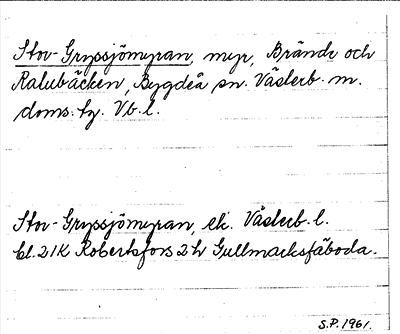 Stor-Gryssjömyran, myr, Brände och
Ralubäcken, Bygdeå sn. Västerb. m.
doms. tg. Vb. l.
Stor-Gryssjömyran, ek. Västerb. l.
bl. 21K Robertsfors 2h Gullmarksfäboda.
S.P. 1961.